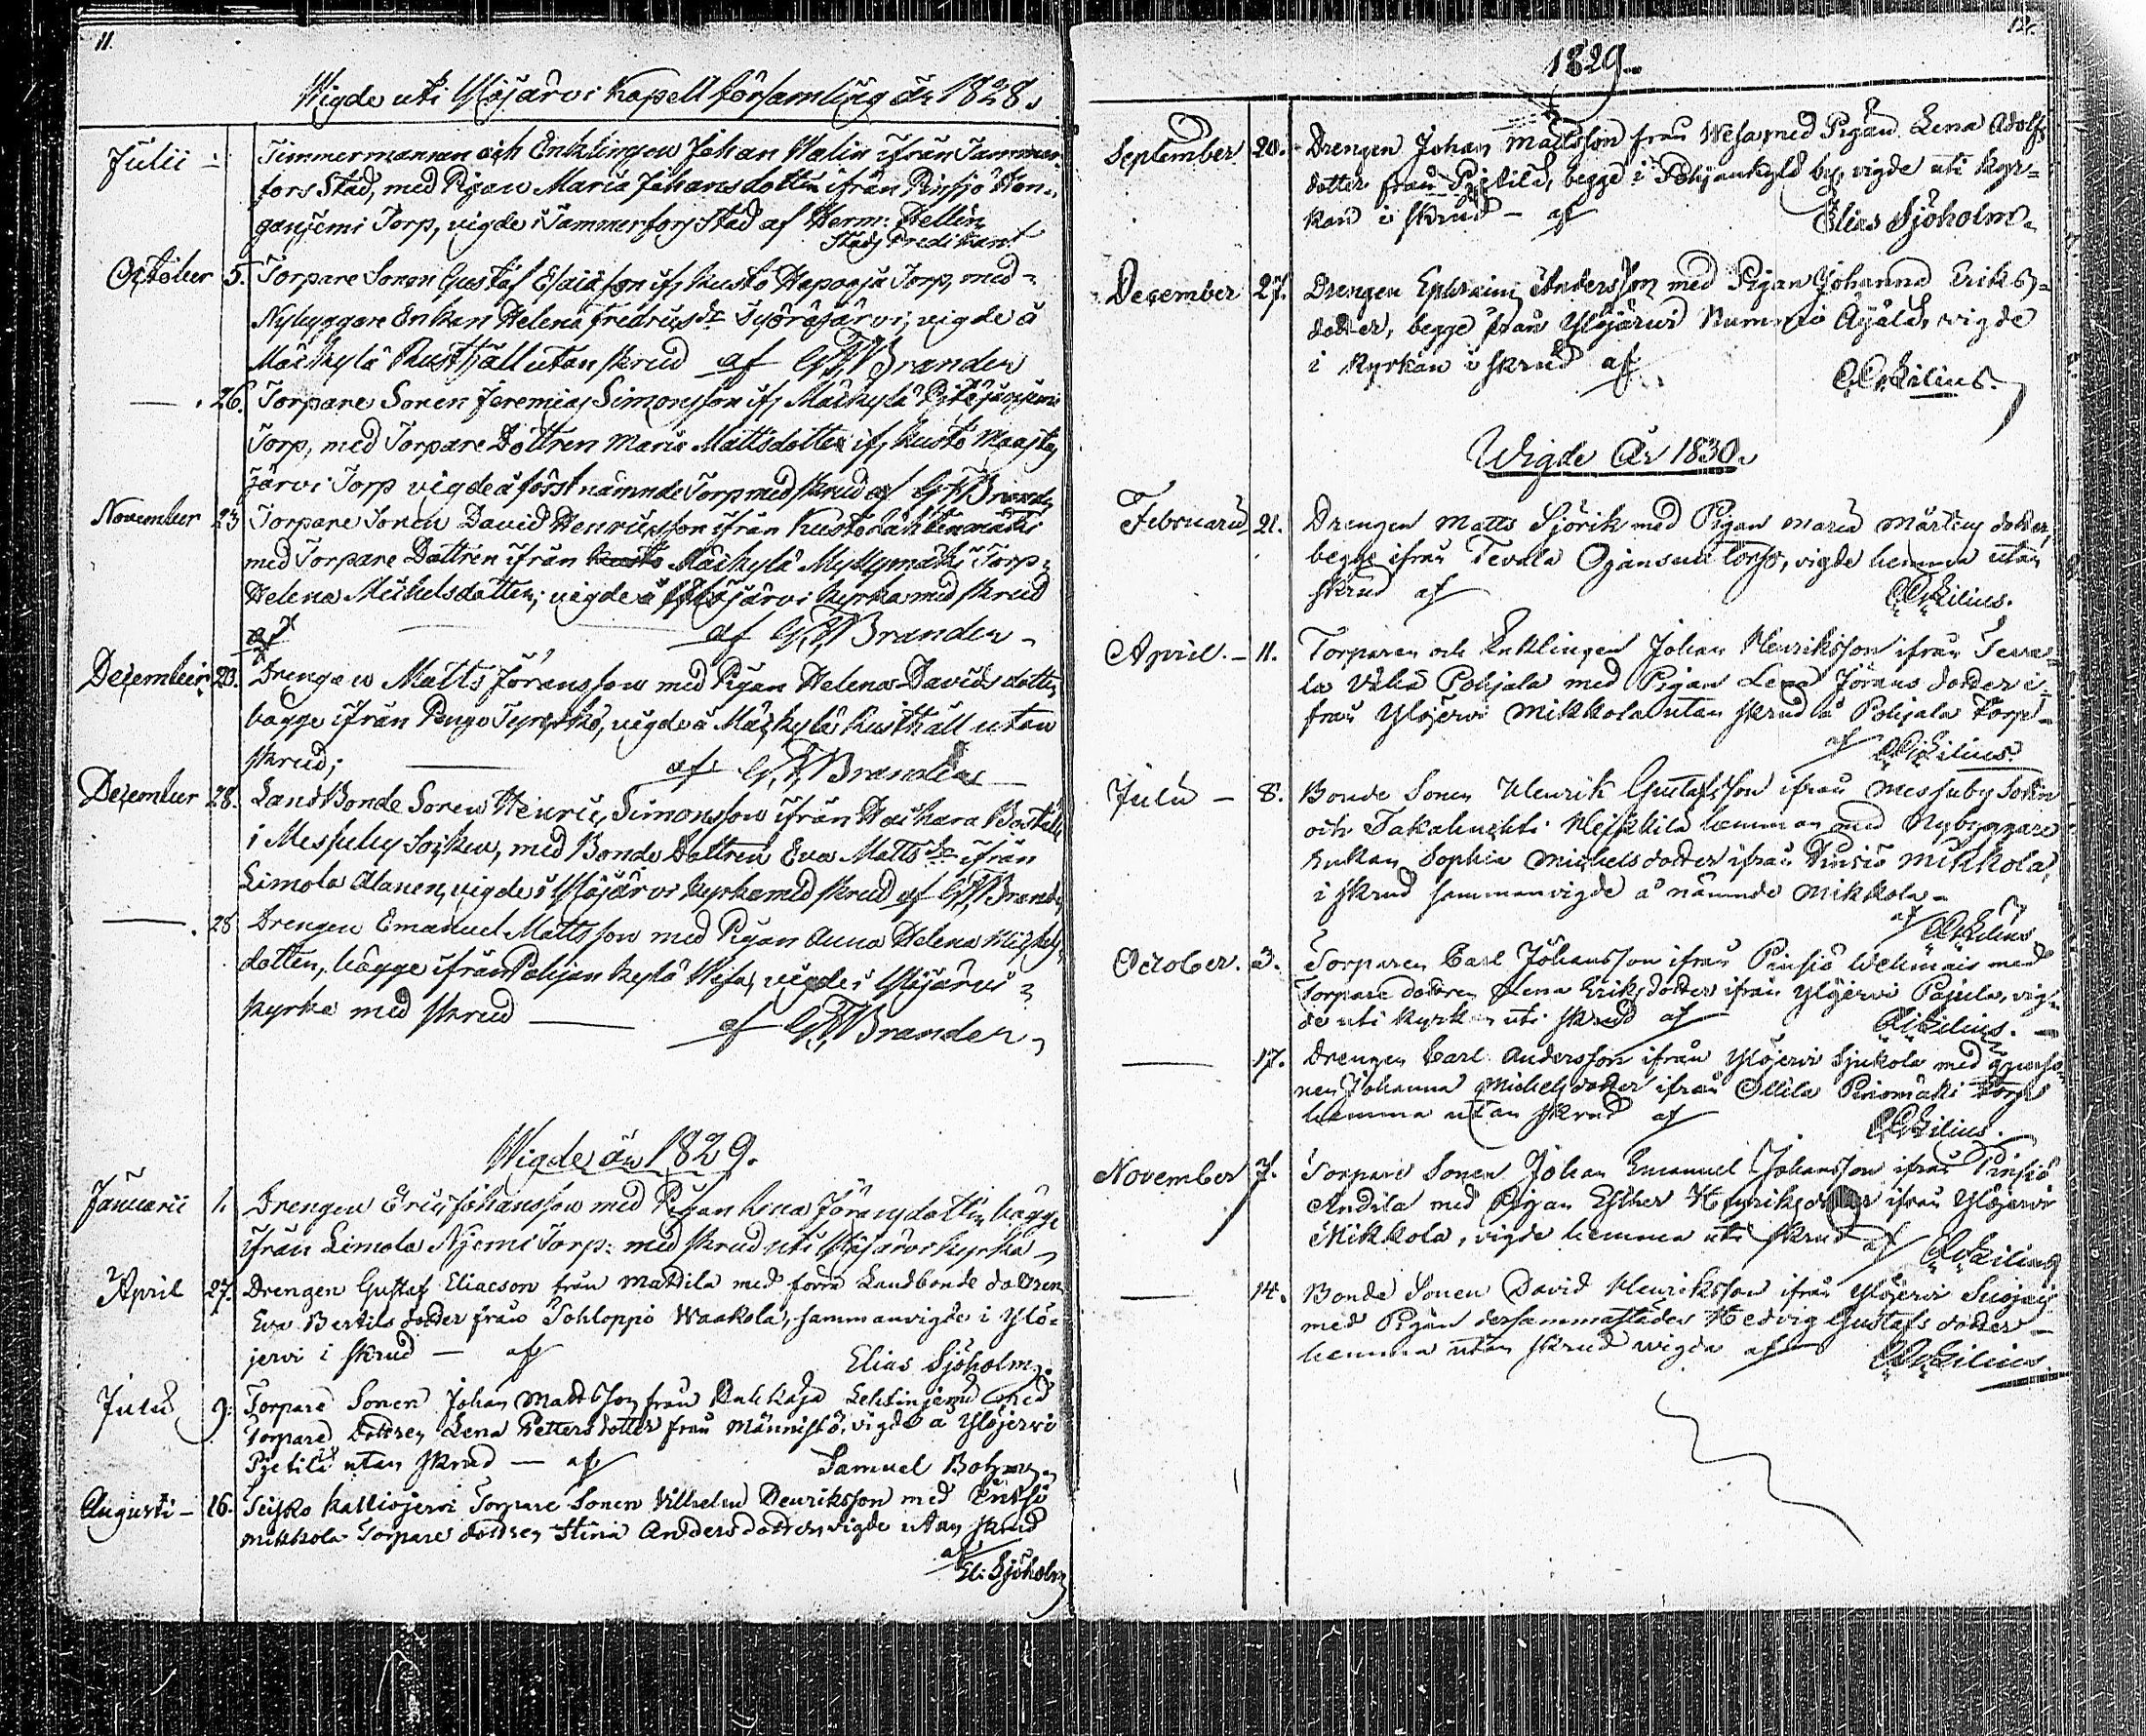 11.
Wigde uti Ylöjärvi Kapell församling år 1828.
Julii -
Timmermannen och Enklingen Johan Walin ifrån Tammer-
fors Stad, med Pigan Maria Johansdotter ifrån Pinsjö Hon-
ganjemi Torp, vigde i Tammerfors Stad af Herm: Hellén
Stads Predikant
October 5. Torpare Sonen Gustaf Esaiasson ifr Kusto Haposja Torp, med
Nybyggare Enkan Helena Fredricsdr, vigde å
Mäckylä Rusthåll utan skrud af G. F. Brander
— . 26. Torpare Sonen Jeremias Simonsson ifr Mäckylä
Torp, med Torpare Dottren Maria Mattsdotter ifr Kusto Maasto
Järvi Torp vigde å först nämnde Torp med skrud af G F Brander
November 23 Torpare Sonen David Henricsson ifrån Kusto Lahtenmäki
med Torpare Dottren ifrån Kusto Mäckylä Myllymäki Torp
Helena Michelsdotter, vigde å Ylöjärvi Kyrka med skrud
af af G. F. Brander
December 20. Drengen Matts Jöransson med Pigan Helena Davidsdotter
bägge ifrån Pengo, vigde å Mäckylä Rusthåll utan
skrud; — af G. F. Brander
December 28. LandBonde Sonen Henric Simonsson ifrån Haihara
i Messuby Socken, med Bonde Dottren Eva Mattsdr ifrån
Limola Alanen, vigde i Ylöjärvi kyrka med skrud af G F Brander
— . 28 Drengen Emanuel Mattsson med Pigan Anna Helena Michels
dotter, bägge ifrån Pohjankylä Wesa, vigde i Ylöjärvi
kyrka med skrud — af G F Brander
Wigde år 1829.
Januarii 1. Drengen Eric Johansson med Pigan Lena Jöransdotter bägge
ifrån Limola Njemi Torp: med skrud uti Ylöjärvi kyrka
April 27. Drengen Gustaf Eliacson från Mattila med förra Landbonde dottren
Eva Bertils dotter från Tohloppi Waakola, sammanvigde i Ylö-
jervi i skrud — af Elias Sjöholm.
Julii 9. Torpare Sonen Johan Mattsson från med
Torpare Dottren Lena Petters dotter från Männistö, vigde å Ylöjervi
Pjetilä utan skrud — af Samuel Bohm
Augusti - 16. Teisko Kalliojervi Torpare Sonen Vilhelm Henriksson med Pinsiö
Mikkola Torpare dottren Stina Anders dotter, vigde utan skrud
af
El: Sjöholm
12.
1829.
September. 20. Drengen Johan Mattsson från Wesa, med Pigan Lena Adolfs
dotter från Pjetilä, begge i Pohjankylä by, vigde uti kyr-
kan i skrud - af Elias Sjöholm.
December 27. Drengen Ephraim Andersson med Pigan Johanna Eriks-
dotter, begge från Ylöjärvi, vigde
i kyrkan i skrud af
Wigde År 1830.
Februarii 21. Drengen Matts Sjörik med Pigan Maria Mårtens dotter,
begge ifrån Tevala Ojansuu Torp, vigde hemma utan
skrud af
April. - 11. Torparen och Enklingen Johan Henriksson ifrån Teva-
la Pohjala med Pigan Lena Jörans dotter i-
från Ylöjervi Mikkola utan skrud å Pohjala Torp
af
Julii - 8. Bonde Sonen Henrik Gustafsson ifrån Messuby Sokn
och Takahuhti Heikkilä hemman med Nybyggare
Enkan Sophia Michels dotter ifrån Pinsiö Mikkola,
i skrud sammanvigde å nämnde Mikkola -
af
October. 3. Torparen Carl Johansson ifrån Pinsiö med
Torpare dottren Lena Eriks dotter ifrån Ylöjervi Pajula, vig-
de uti kyrkan uti skrud af
— 17. Drengen Carl Andersson ifrån Ylöjervi med
Johanna Michels dotter ifrån Ollila Torp
hemma utan skrud af
November 7. Torpare Sonen Johan Emanuel Johansson ifrån Pinsiö
Andila med Pigan Esther Henriksdotter ifrån Ylöjervi
Mikkola, vigde hemma uti skrud af
— 14. Bonde Sonen David Henriksson ifrån Ylöjervi
med Pigan dersammastädes Hedvig Gustafs dotter
hemma utan skrud vigde af